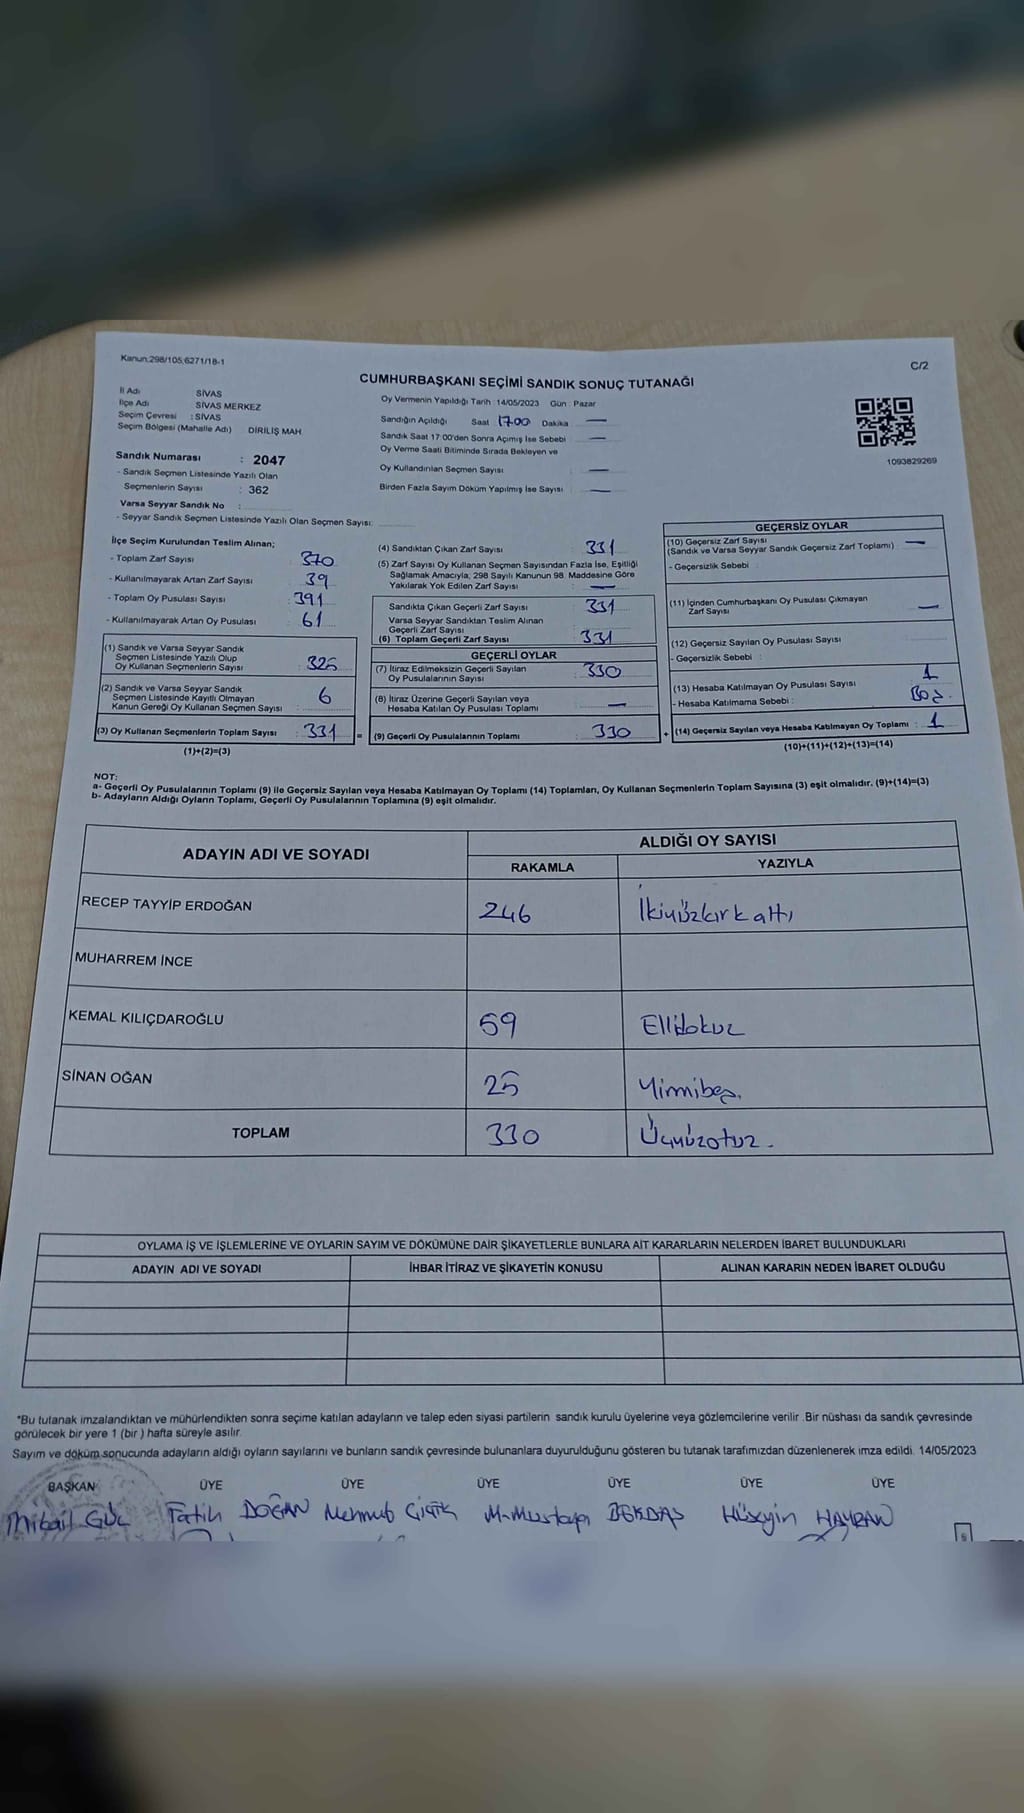 Kanun:298/105,6271/18-1
C/2
CUMHURBAŞKANI SEÇİMİ SANDIK SONUÇ TUTANAĞI
İl Adı SİVAS
İlçe Adı SİVAS MERKEZ
Seçim Çevresi : SİVAS
Seçim Bölgesi (Mahalle Adı) DİRİLİŞ MAH.
Sandık Numarası : 2047
- Sandık Seçmen Listesinde Yazılı Olan
Seçmenlerin Sayısı : 362
Varsa Seyyar Sandık No :
- Seyyar Sandık Seçmen Listesinde Yazılı Olan Seçmen Sayısı:
Oy Vermenin Yapıldığı Tarih : 14/05/2023 Gün : Pazar
Sandığın Açıldığı Saat 17.00 Dakika —
Sandık Saat 17:00'den Sonra Açımış İse Sebebi —
Oy Verme Saati Bitiminde Sırada Bekleyen ve
Oy Kullandırılan Seçmen Sayısı —
Birden Fazla Sayım Döküm Yapılmış İse Sayısı : —
1093829269
İlçe Seçim Kurulundan Teslim Alınan;
- Toplam Zarf Sayısı : 370
- Kullanılmayarak Artan Zarf Sayısı : 39
- Toplam Oy Pusulası Sayısı : 391
- Kullanılmayarak Artan Oy Pusulası : 61
(1) Sandık ve Varsa Seyyar Sandık
Seçmen Listesinde Yazılı Olup
Oy Kullanan Seçmenlerin Sayısı : 325
(2) Sandık ve Varsa Seyyar Sandık
Seçmen Listesinde Kayıtlı Olmayan
Kanun Gereği Oy Kullanan Seçmen Sayısı : 6
(3) Oy Kullanan Seçmenlerin Toplam Sayısı : 331 =
(1)+(2)=(3)
(4) Sandıktan Çıkan Zarf Sayısı : 331
(5) Zarf Sayısı Oy Kullanan Seçmen Sayısından Fazla İse, Eşitliği
Sağlamak Amacıyla; 298 Sayılı Kanunun 98. Maddesine Göre
Yakılarak Yok Edilen Zarf Sayısı : —
Sandıkta Çıkan Geçerli Zarf Sayısı : 331
Varsa Seyyar Sandıktan Teslim Alınan
Geçerli Zarf Sayısı
(6) Toplam Geçerli Zarf Sayısı : 331
GEÇERLİ OYLAR
(7) İtiraz Edilmeksizin Geçerli Sayılan
Oy Pusulalarının Sayısı : 330
(8) İtiraz Üzerine Geçerli Sayılan veya
Hesaba Katılan Oy Pusulası Toplamı : —
(9) Geçerli Oy Pusulalarının Toplamı : 330 +
GEÇERSİZ OYLAR
(10) Geçersiz Zarf Sayısı
(Sandık ve Varsa Seyyar Sandık Geçersiz Zarf Toplamı) : —
- Geçersizlik Sebebi :
(11) İçinden Cumhurbaşkanı Oy Pusulası Çıkmayan
Zarf Sayısı : —
(12) Geçersiz Sayılan Oy Pusulası Sayısı :
- Geçersizlik Sebebi :
(13) Hesaba Katılmayan Oy Pusulası Sayısı : 1
- Hesaba Katılmama Sebebi : Boş.
(14) Geçersiz Sayılan veya Hesaba Katılmayan Oy Toplamı : 1
(10)+(11)+(12)+(13)=(14)
NOT:
a- Geçerli Oy Pusulalarının Toplamı (9) ile Geçersiz Sayılan veya Hesaba Katılmayan Oy Toplamı (14) Toplamları, Oy Kullanan Seçmenlerin Toplam Sayısına (3) eşit olmalıdır. (9)+(14)=(3)
b- Adayların Aldığı Oyların Toplamı, Geçerli Oy Pusulalarının Toplamına (9) eşit olmalıdır.
ADAYIN ADI VE SOYADI ALDIĞI OY SAYISI
RAKAMLA YAZIYLA
RECEP TAYYİP ERDOĞAN 246 İkiyüzkırkaltı
MUHARREM İNCE
KEMAL KILIÇDAROĞLU 59 Ellidokuz
SİNAN OĞAN 25 Yirmibeş.
TOPLAM 330 Üçyüzotuz.
OYLAMA İŞ VE İŞLEMLERİNE VE OYLARIN SAYIM VE DÖKÜMÜNE DAİR ŞİKAYETLERLE BUNLARA AİT KARARLARIN NELERDEN İBARET BULUNDUKLARI
ADAYIN ADI VE SOYADI İHBAR İTİRAZ VE ŞİKAYETİN KONUSU ALINAN KARARIN NEDEN İBARET OLDUĞU
*Bu tutanak imzalandıktan ve mühürlendikten sonra seçime katılan adayların ve talep eden siyasi partilerin sandık kurulu üyelerine veya gözlemcilerine verilir .Bir nüshası da sandık çevresinde
görülecek bir yere 1 (bir ) hafta süreyle asılır.
Sayım ve döküm sonucunda adayların aldığı oyların sayılarını ve bunların sandık çevresinde bulunanlara duyurulduğunu gösteren bu tutanak tarafımızdan düzenlenerek imza edildi. 14/05/2023
BAŞKAN ÜYE ÜYE ÜYE ÜYE ÜYE ÜYE
Mikail GÜL Fatih DOĞAN Mehmet Çiçik M.Mustafa BEKDAŞ Hüseyin HAYRAN